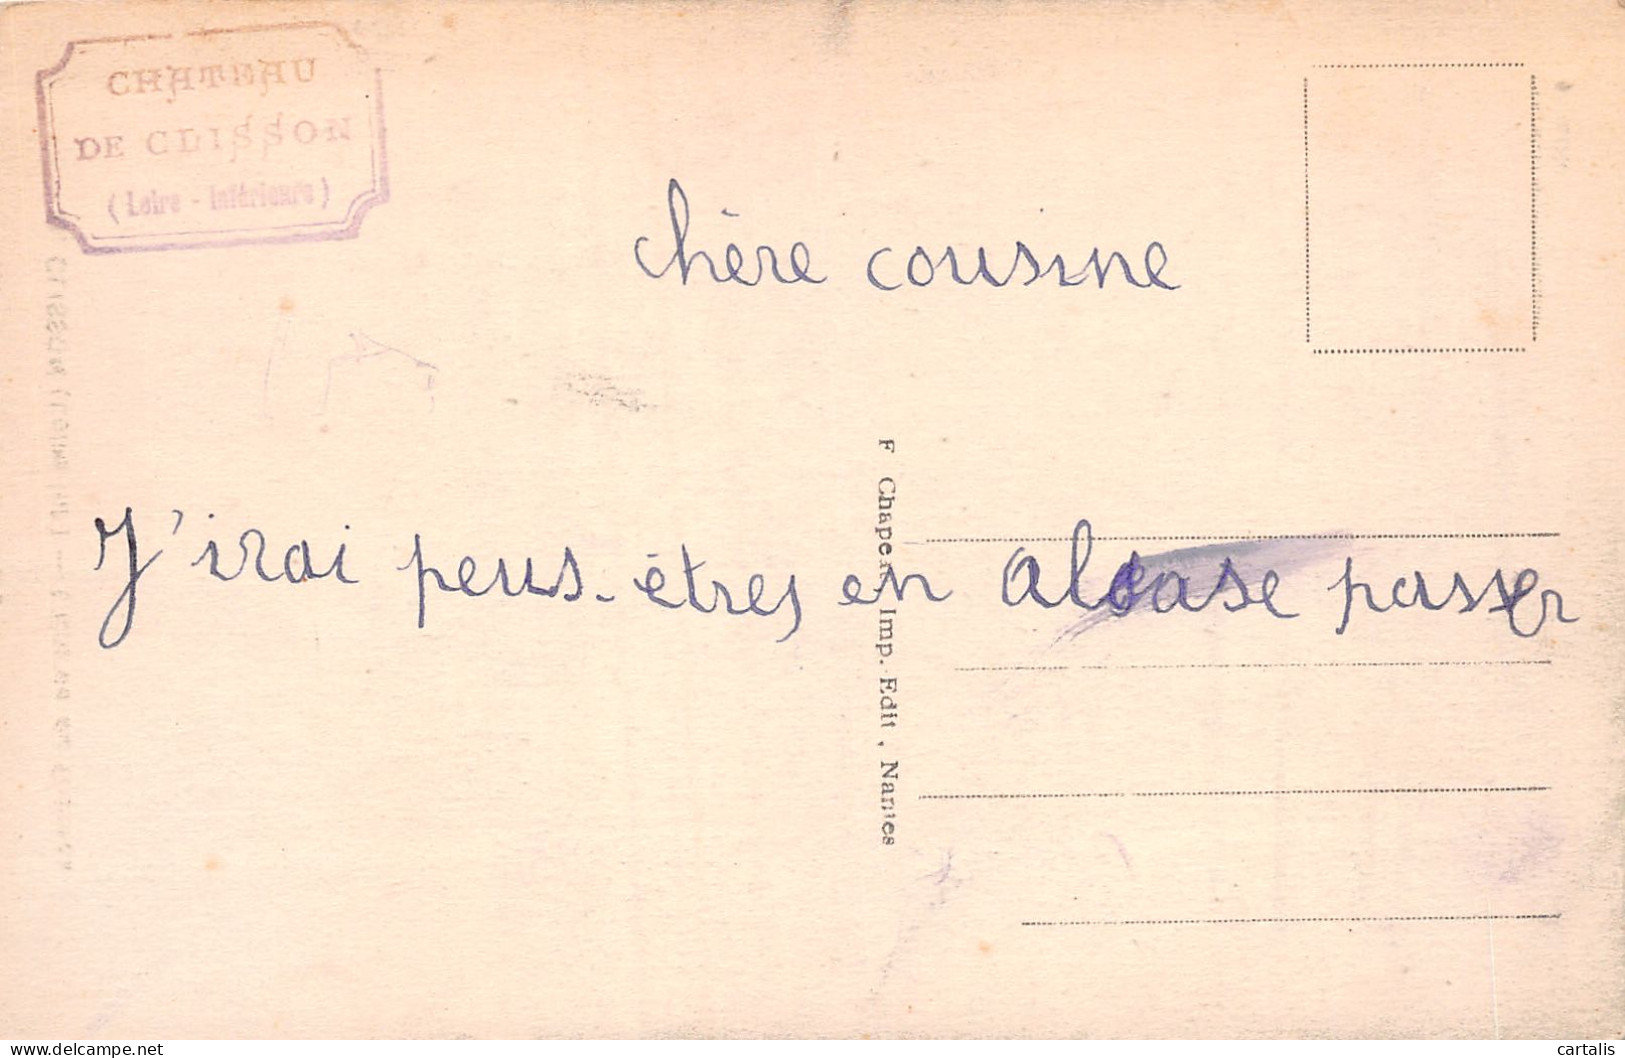 CHATEAU
DE CLISSON
(Loire - Inférieure)
chère cousine
J'irai peus-êtres en alsase passer
F Chapeau, Imp.-Edit, Nantes
delcampe.net
cartalis